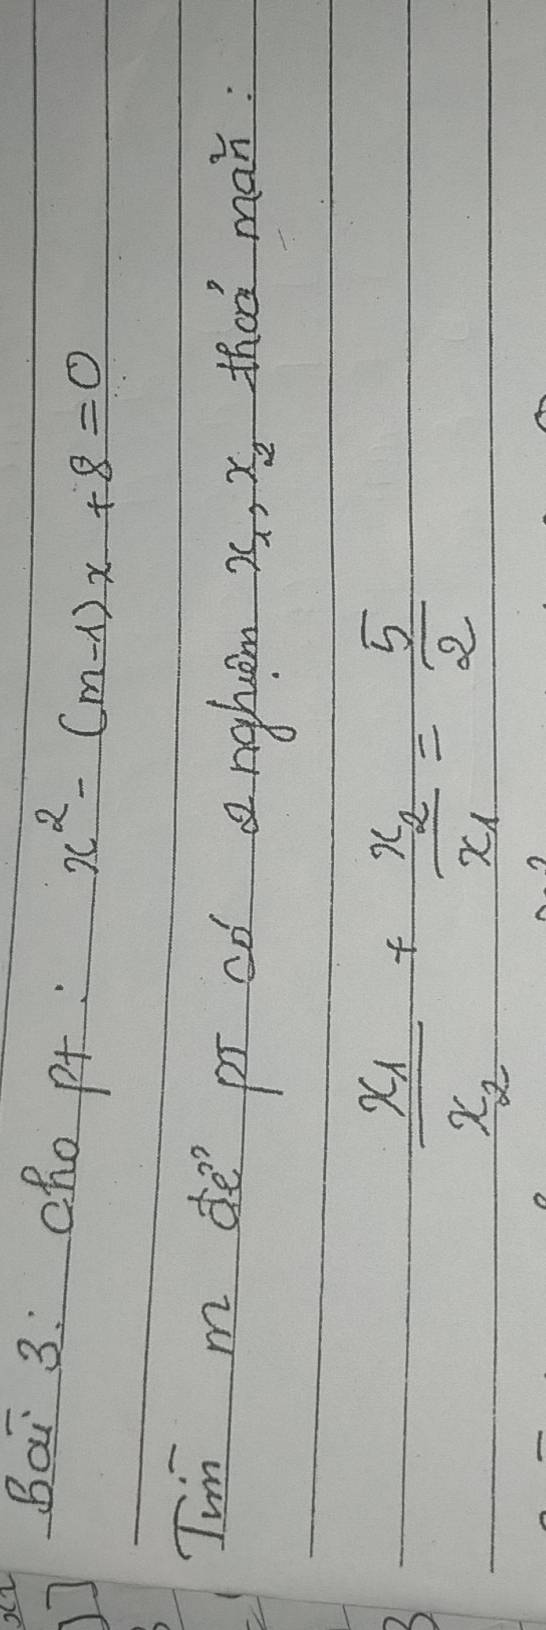 Bài 3: Cho pt: x² - (m-1)x + 8 = 0
Tìm m để pt có 2 nghiệm x₁, x₂ thoả mãn:
x₁/x₂ + x₂/x₁ = 5/2